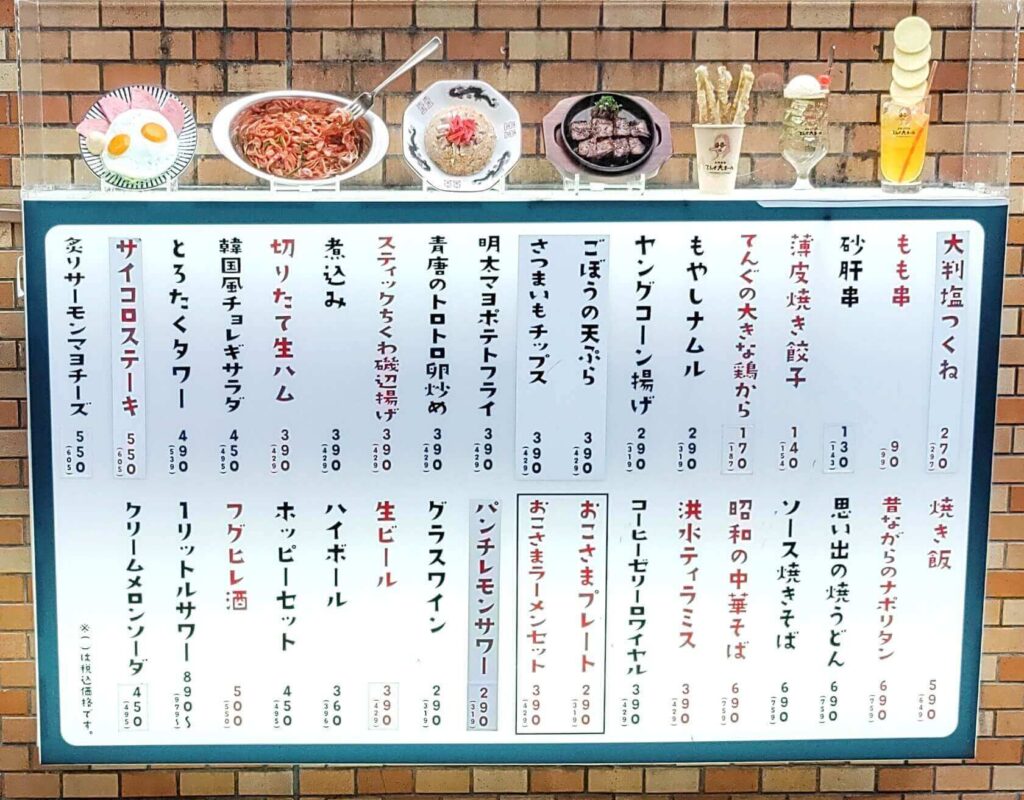 大判塩つくね 270 (297)
もも串 90 (99)
砂肝串 130 (143)
薄皮焼き餃子 140 (154)
てんぐの大きな鶏から 170 (187)
もやしナムル 290 (319)
ヤングコーン揚げ 290 (319)
ごぼうの天ぷら 390 (429)
さつまいもチップス 390 (429)
明太マヨポテトフライ 390 (429)
青唐のトロトロ卵炒め 390 (429)
スティックちくわ磯辺揚げ 390 (429)
煮込み 390 (429)
切りたて生ハム 390 (429)
韓国風チョレギサラダ 450 (495)
とろたくタワー 490 (539)
サイコロステーキ 550 (605)
炙りサーモンマヨチーズ 550 (605)
焼き飯 590 (649)
昔ながらのナポリタン 690 (759)
思い出の焼うどん 690 (759)
ソース焼きそば 690 (759)
昭和の中華そば 690 (759)
洪水ティラミス 390 (429)
コーヒーゼリーロワイヤル 390 (429)
おこさまプレート 290 (319)
おこさまラーメンセット 390 (429)
パンチレモンサワー 290 (319)
グラスワイン 290 (319)
生ビール 390 (429)
ハイボール 360 (396)
ホッピーセット 450 (495)
フグヒレ酒 500 (550)
1リットルサワー 890〜 (979〜)
クリームメロンソーダ 450 (495)
※( )は税込価格です。